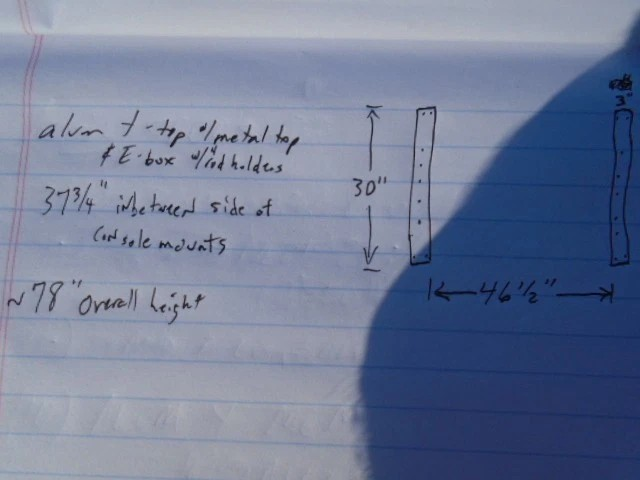 alum t-top w/metal top
& E-box w/4 rod holders
37 3/4" inbetween side of
console mounts
~78" overall height
30"
3"
46 1/2"